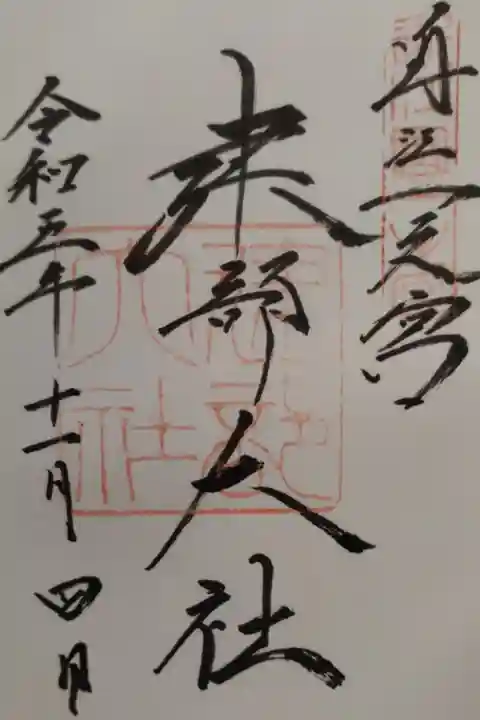 近江一之宮
建部大社
令和五年十一月四日